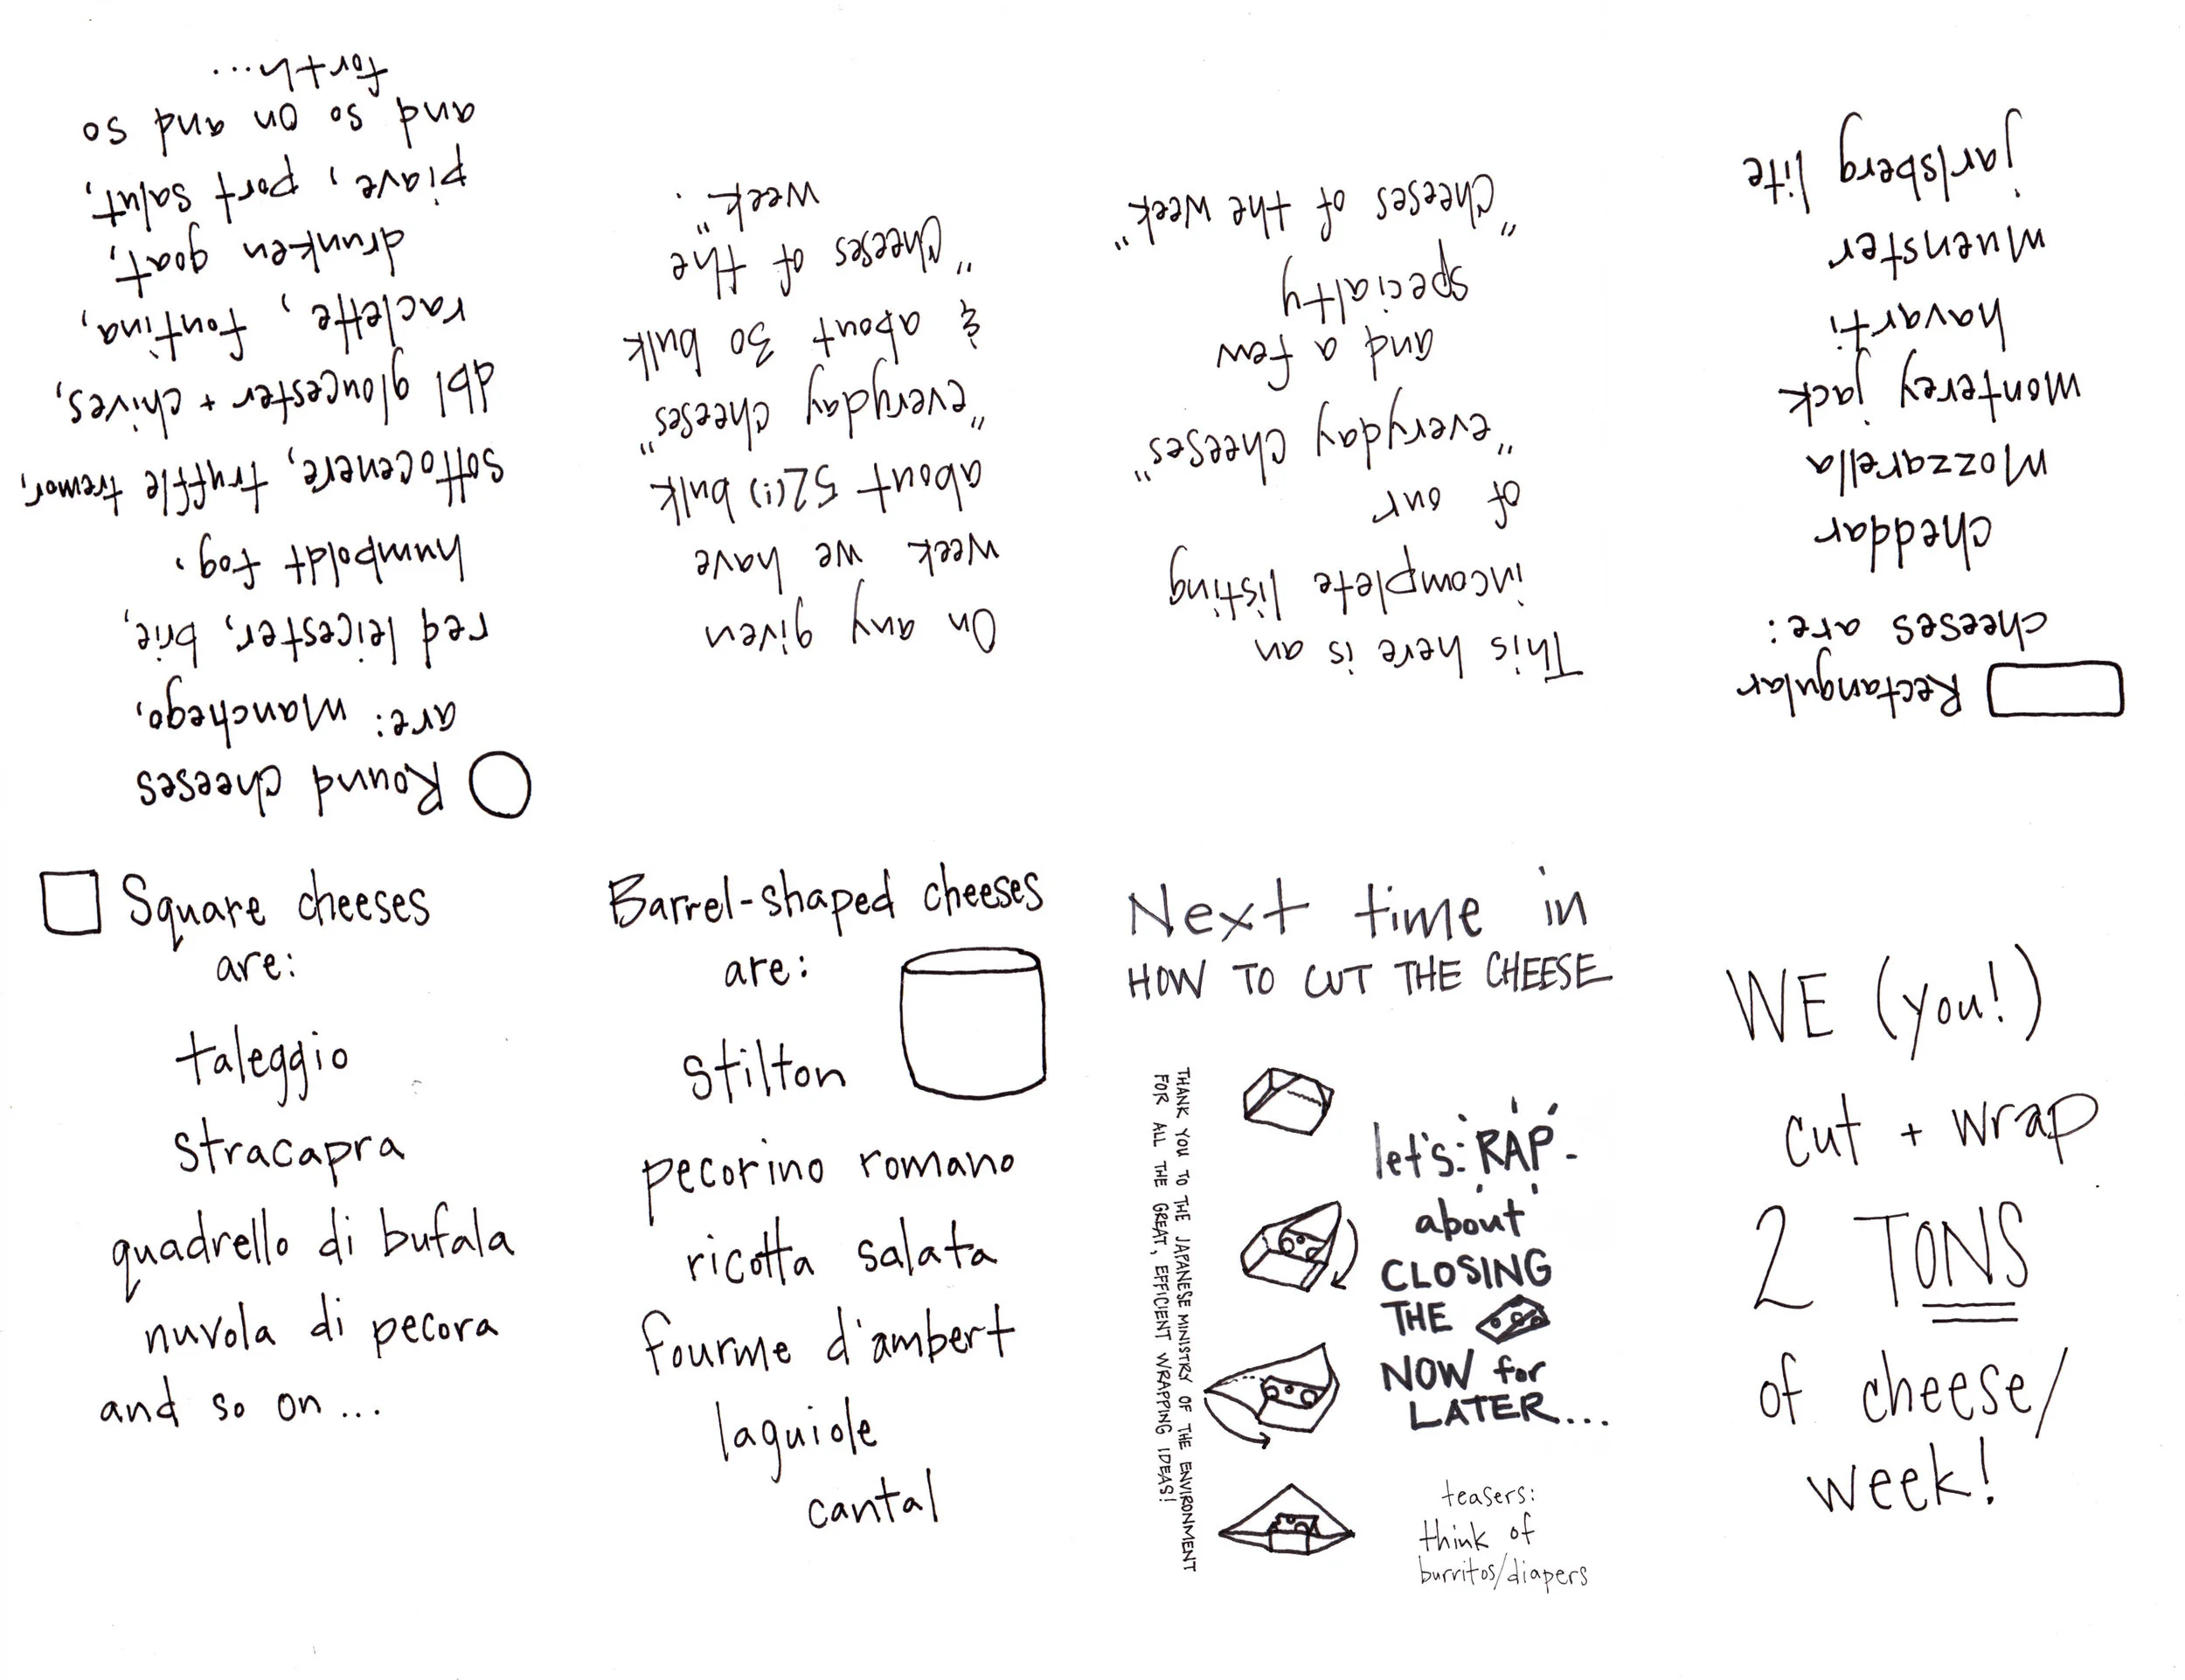 Round cheeses
are: manchego,
red leicester, brie,
humboldt fog,
sottocenere, truffle tremor,
dbl gloucester + chives,
raclette, fontina,
drunken goat,
piave, port salut,
and so on and so
forth...
On any given
week we have
about 52(!) bulk
"everyday cheeses"
& about 30 bulk
"cheeses of the
week".
This here is an
incomplete listing
of our
"everyday cheeses"
and a few
specialty
"cheeses of the week"
Rectangular
cheeses are:
cheddar
mozzarella
monterey jack
havarti
muenster
jarlsberg lite
Square cheeses
are:
taleggio
stracapra
quadrello di bufala
nuvola di pecora
and so on...
Barrel-shaped cheeses
are:
stilton
pecorino romano
ricotta salata
fourme d'ambert
laguiole
cantal
Next time in
HOW TO CUT THE CHEESE
THANK YOU TO THE JAPANESE MINISTRY OF THE ENVIRONMENT
FOR ALL THE GREAT, EFFICIENT WRAPPING IDEAS!
let's RAP
about
CLOSING
THE
NOW for
LATER...
teasers:
think of
burritos/diapers
WE (you!)
cut + wrap
2 TONS
of cheese/
week!